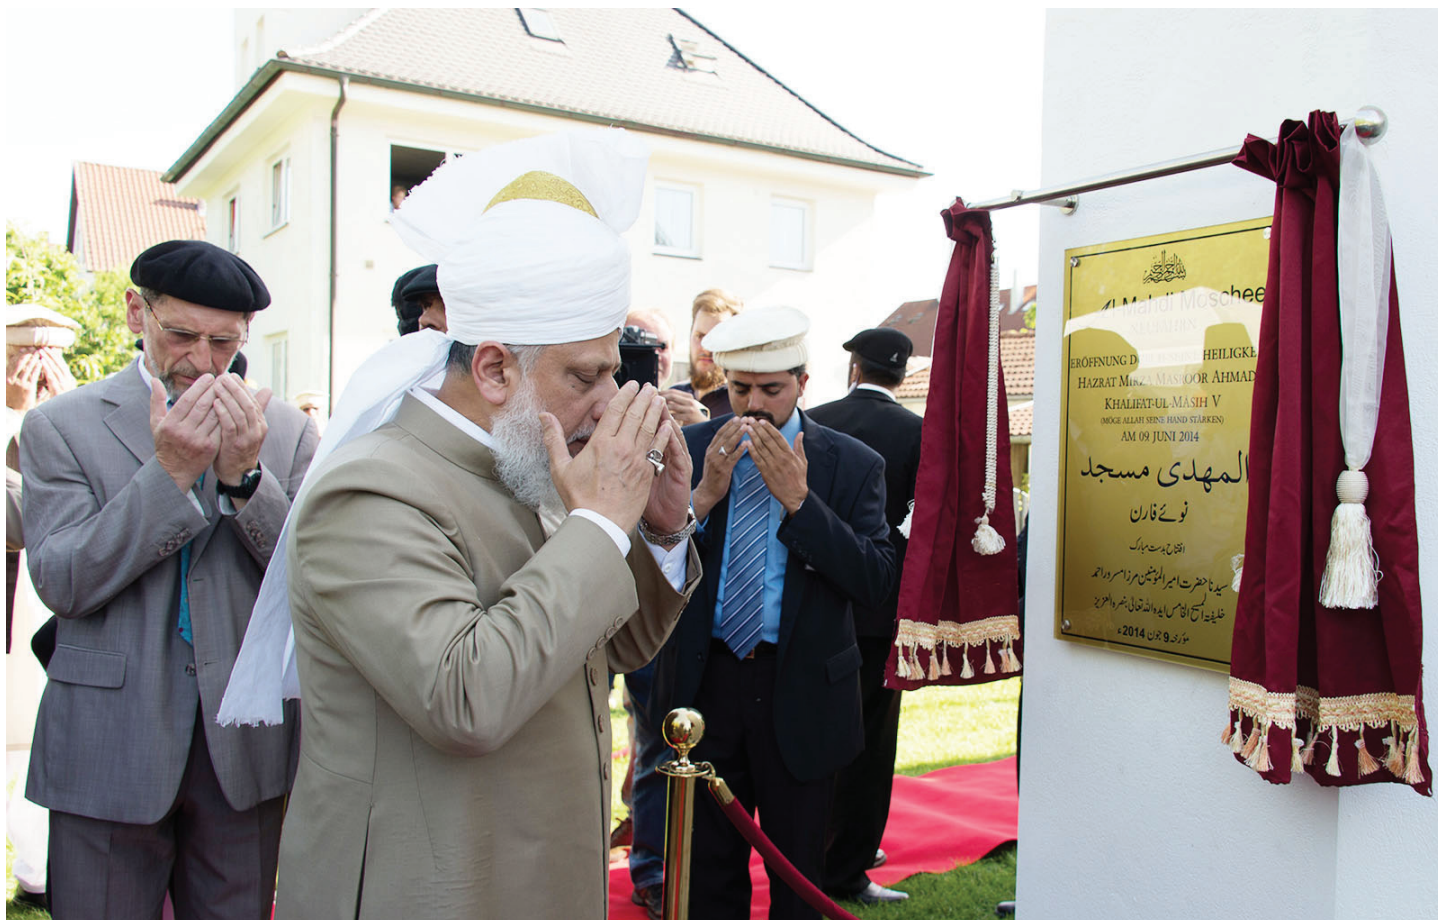 Al-Mahdi Moschee
ERÖFFNUNG DURCH SEINE HEILIGKE
HAZRAT MIRZA MASROOR AHMAD
KHALIFAT-UL-MASIH V
(MÖGE ALLAH SEINE HAND STÄRKEN)
AM 09 JUNI 2014
المهدی مسجد
نوئے فارن
افتتاح بدست مبارک
سیدنا حضرت امیر المؤمنین مرزا مسرور احمد
خلیفۃ المسیح الخامس ایدہ اللہ تعالیٰ بنصرہ العزیز
مؤرخہ 9 جون 2014ء